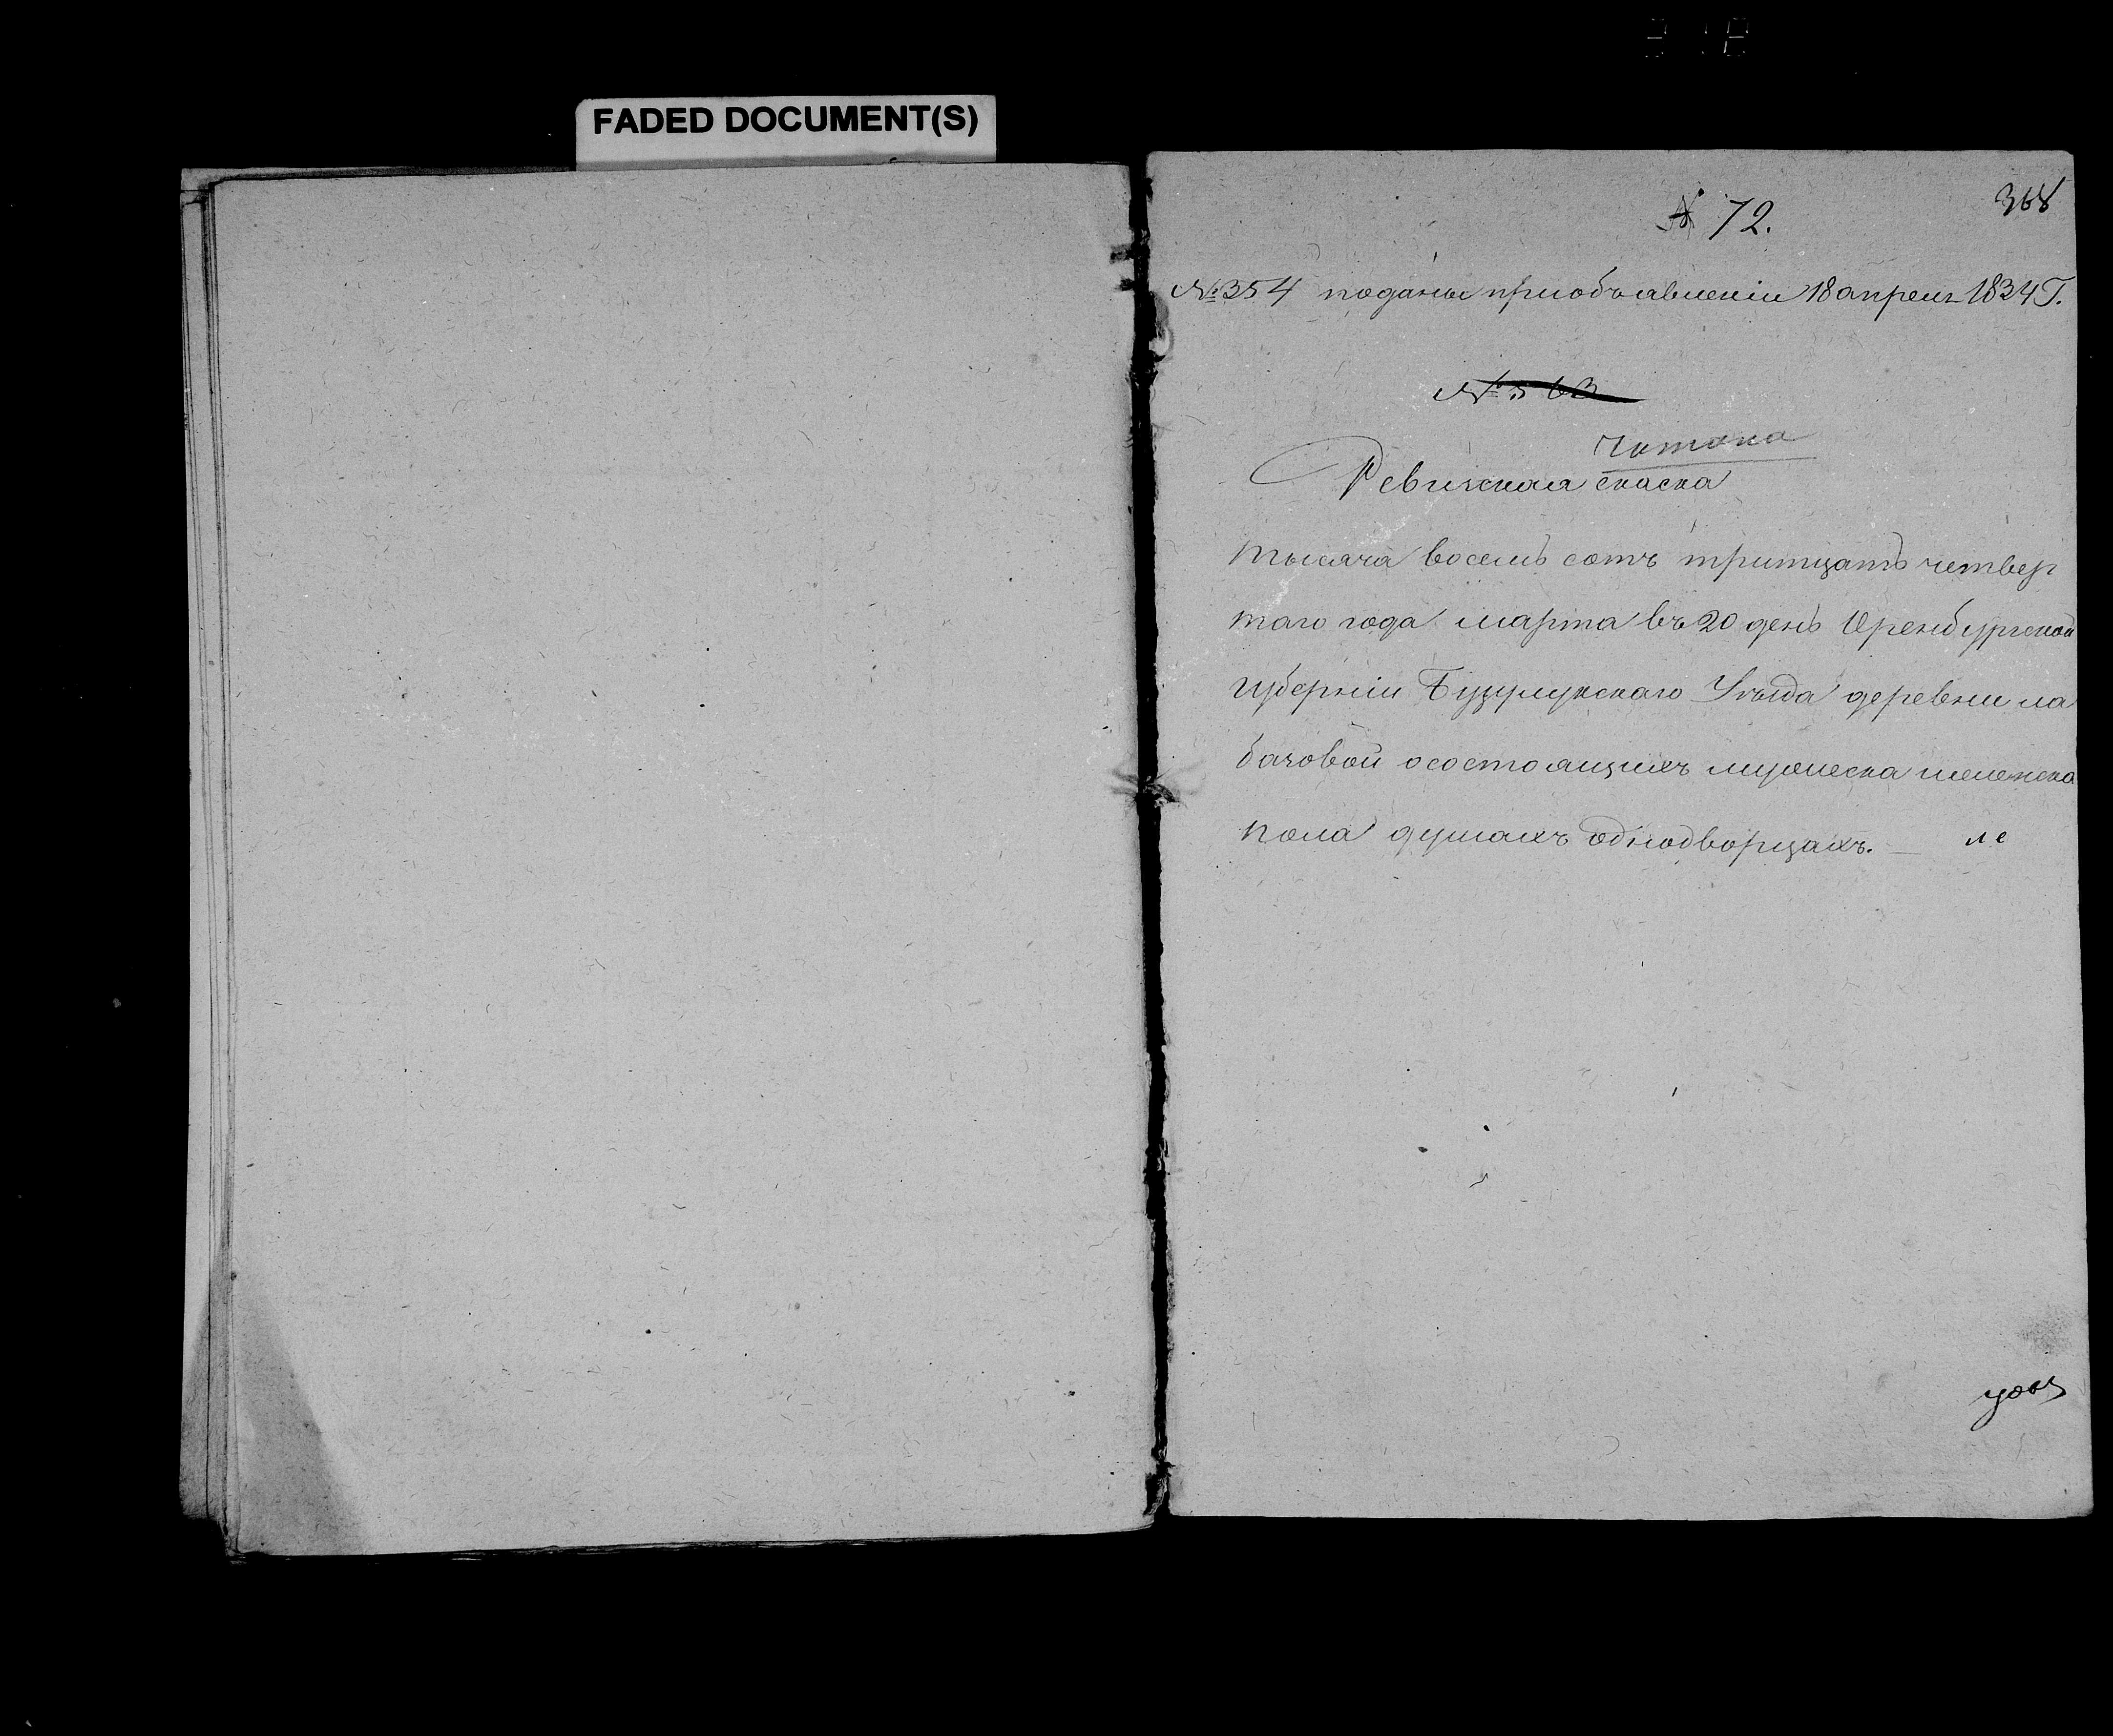 FADED DOCUMENT(S)
№ 72.
368
№ 354 поданы приобъявленіи 18 апреля 1834 Г.
№ 563
Читана
Ревижская скаска
тысяча восемь сотъ тритцать четвер
таго года марта въ 20 день Оренбургской
губерніи Бузулукскаго Уезда деревни ла
базовой осостоящихъ мужеска иженска
пола душахъ однодворцахъ.